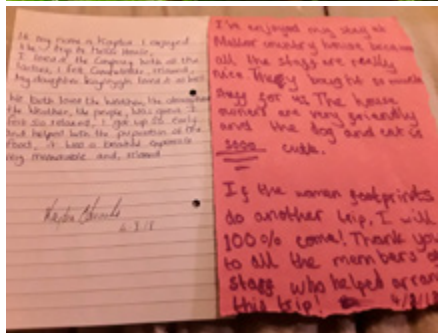 my name is I enjoyed
the trip to House,
I loved the Company with all the
I felt comfortable, relaxed,
my daughter loved it as well
We both loved the weather, the atmosphere
the weather, the people, was
felt so relaxed, I got up so early
and helped with the preparation of the
food, it was a experience
very memorable and, relaxed
I've enjoyed my stay at
Mellor country house because
all the staff are really
nice They bought so much
stuff for us The house
owners are very friendly
and the dog and cat is
sooo cute.
If the women footprints
do another trip, I will
100% come! Thank you
to all the members of
staff who helped
this trip!